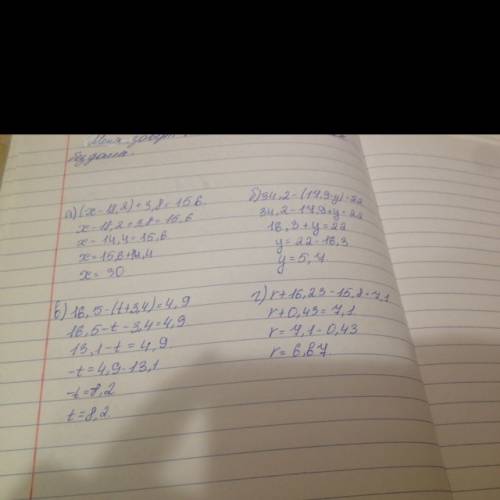 Меня
а) (x-18,2)+3,8=15,6.
x-18,2+3,8=15,6
x-14,4=15,6
x=15,6+14,4
x=30
б) 34,2-(17,9-y)=22
34,2-17,9+y=22
16,3+y=22
y=22-16,3
y=5,7
в) 16,5-(t+3,4)=4,9
16,5-t-3,4=4,9
13,1-t=4,9
-t=4,9-13,1
-t=8,2
t=8,2
г) r+16,23-15,8=7,1
r+0,43=7,1
r=7,1-0,43
r=6,67